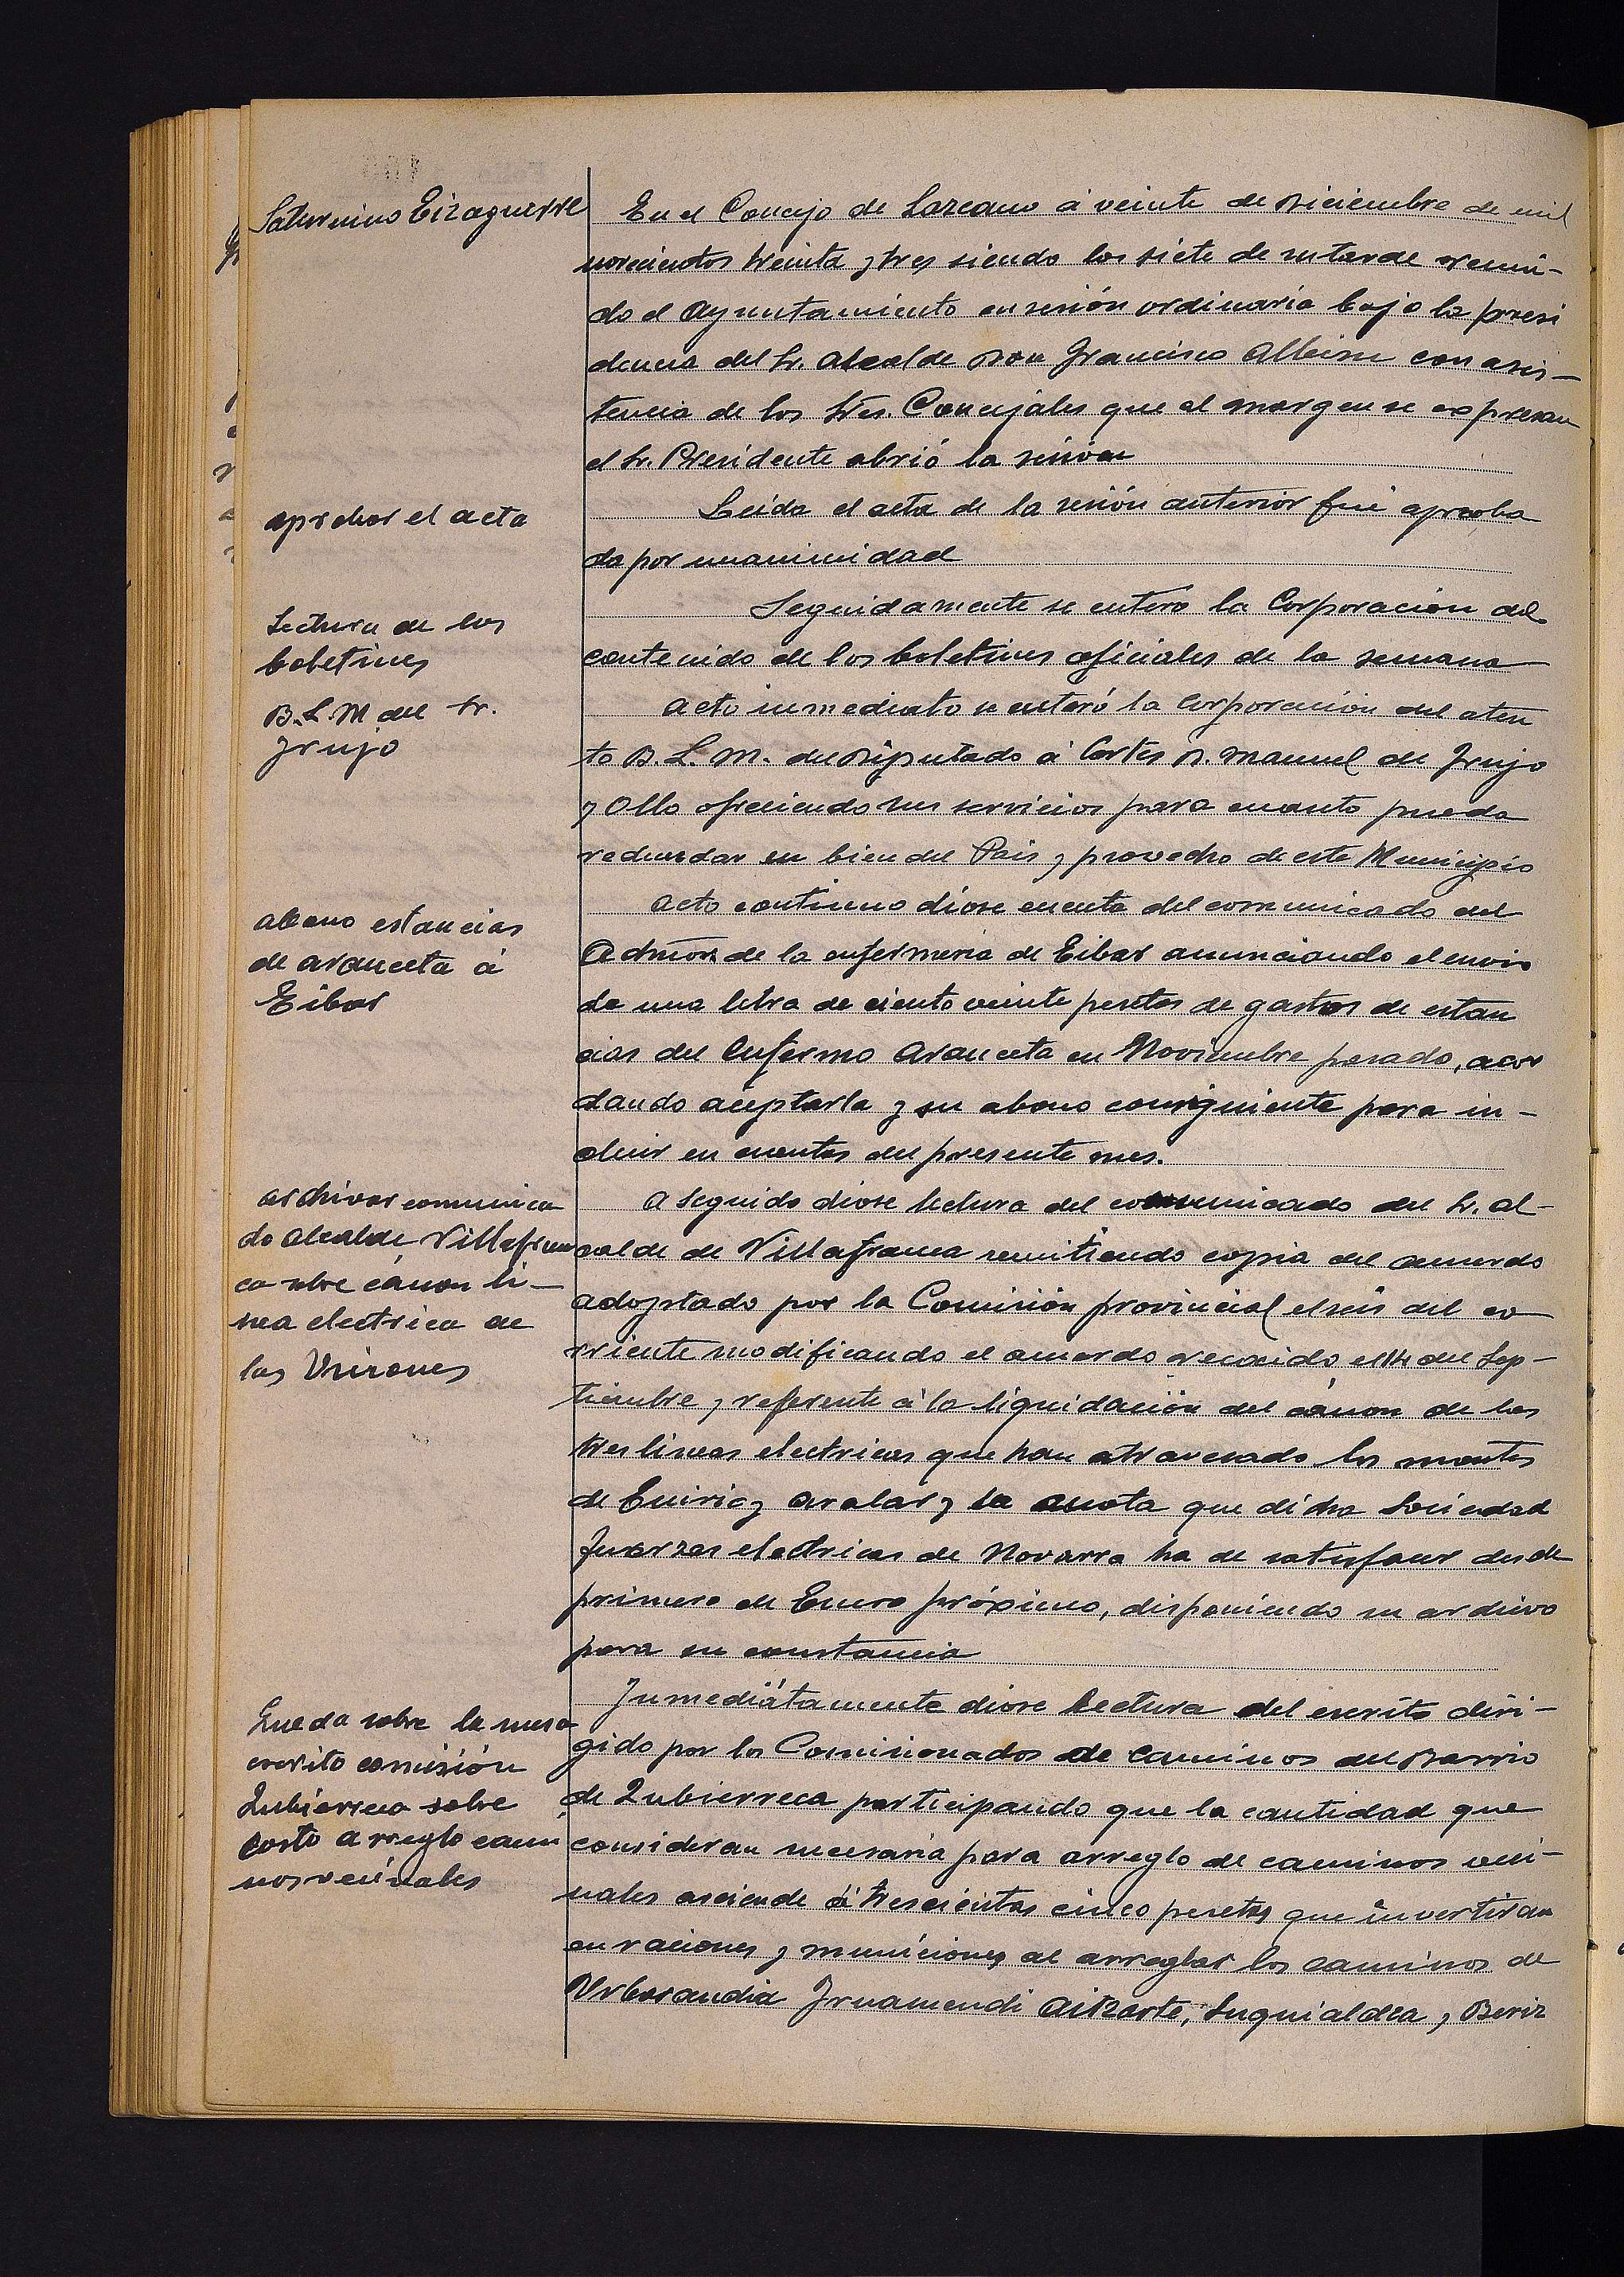 Saturnino Eizaguirre
En el Concejo de Lazcano á veinte de Diciembre de mil
novecientos treinta y tres siendo las siete de su tarde reuni-
do el Ayuntamiento en sesión ordinaria bajo la presi
dencia del Sr. Alcalde Don Francisco Albisu con asis-
tencia de los Sres. Concejales que al margen se expresan
el Sr. Presidente abrió la sesión
aprobar el acta
Leida el acta de la sesión anterior fué aproba
da por unanimidad
Lectura de los
boletines
Seguidamente se enteró la Corporación del
contenido de los boletines oficiales de la semana
B.L.M del Sr.
Irujo
Acto inmediato se enteró la Corporación del aten
to B. L. M. del Diputado á Cortes D. Manuel de Irujo
y Ollo ofreciendo sus servicios para cuanto pueda
redundar en bien del Pais y provecho de este Municipio
abono estancias
de Aranceta á
Eibar
Acto continuo dióse cuenta del comunicado del
Admor de la enfermeria de Eibar anunciando el envio
de una letra de ciento veinte pesetas de gastos de estan
cias del enfermo Aranceta en Noviembre pasado, acor
dando aceptarla y su abono consiguiente para in-
cluir en cuentas del presente mes.
archivar comunica
do Alcalde Villafran
ca sobre cánon li-
nea electrica de
las Uniones
A seguido dióse lectura del comunicado del Sr. Al-
calde de Villafranca remitiendo copia del acuerdo
adoptado por la Comisión provincial el seis del co
rriente modificando el acuerdo recaido el 14 del Sep-
tiembre y referente á la liquidación del cánon de las
tres lineas electricas que han atravesado los montes
de Enirio y Aralar y la cuota que dicha Sociedad
Fuerzas electricas de Navarra ha de satisfacer desde
primero de Enero próximo, disponiendo su archivo
para su constancia
Queda sobre la mesa
escrito comisión
Zubierreca sobre
costo arreglo cami
nos vecinales
Inmediatamente dióse lectura del escrito diri-
gido por los Comisionados de caminos del Barrio
de Zubierreca participando que la cantidad que
consideran necesaria para arreglo de caminos veci-
nales asciende á trescientas cinco pesetas que invertiran
en raciones y municiones al arreglar los caminos de
Urbasandia Iruamendi Aitzarte, Suquialdea y Beriz